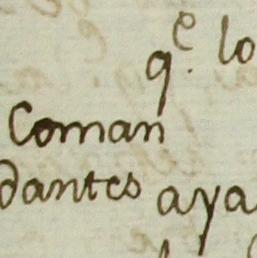 qe. lo
Coman
dantes aya